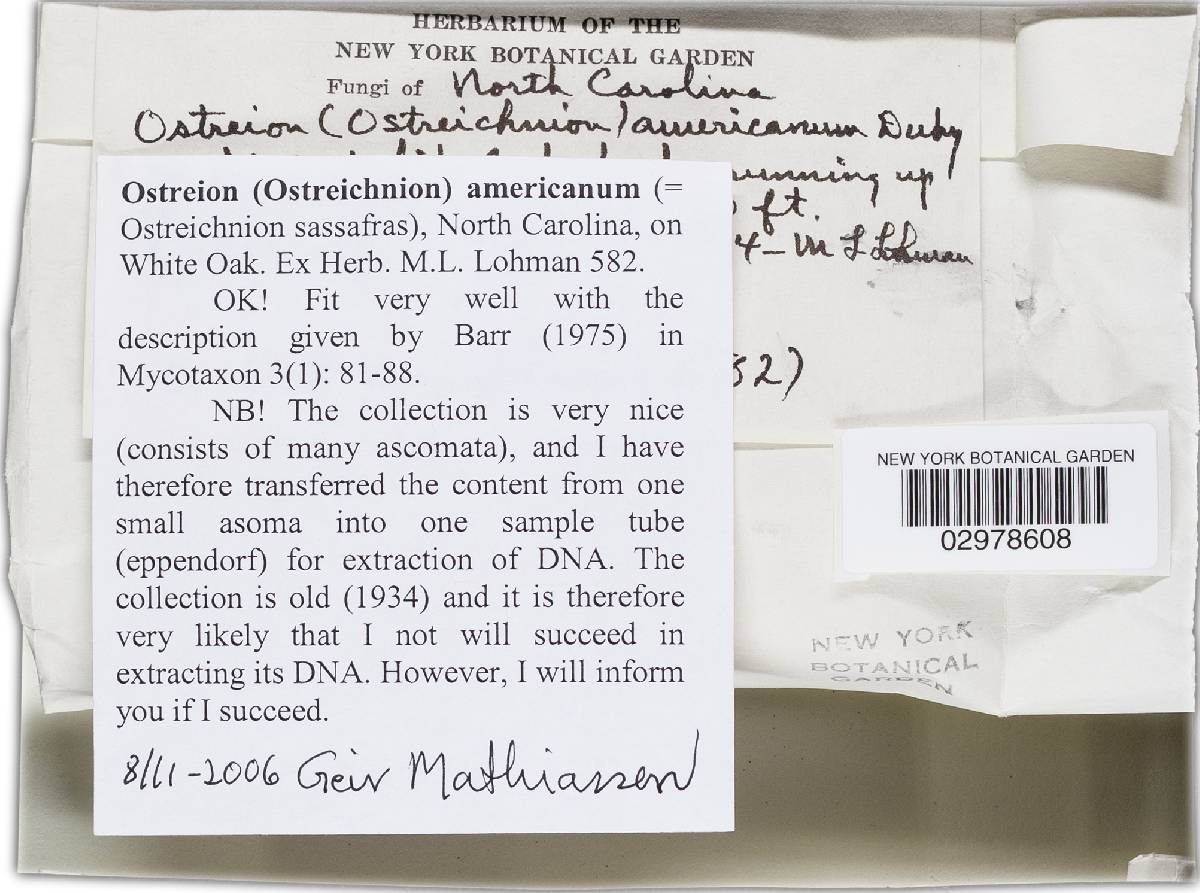 HERBARIUM OF THE
NEW YORK BOTANICAL GARDEN
Fungi of North Carolina
Ostreion (Ostreichnion) americanum Duby
running up
ft.
4 - M L Lohman
82)
Ostreion (Ostreichnion) americanum (=
Ostreichnion sassafras), North Carolina, on
White Oak. Ex Herb. M.L. Lohman 582.
OK! Fit very well with the
description given by Barr (1975) in
Mycotaxon 3(1): 81-88.
NB! The collection is very nice
(consists of many ascomata), and I have
therefore transferred the content from one
small asoma into one sample tube
(eppendorf) for extraction of DNA. The
collection is old (1934) and it is therefore
very likely that I not will succeed in
extracting its DNA. However, I will inform
you if I succeed.
8/11-2006 Geir Mathiassen
NEW YORK BOTANICAL GARDEN
02978608
NEW YORK
BOTANICAL
GARDEN